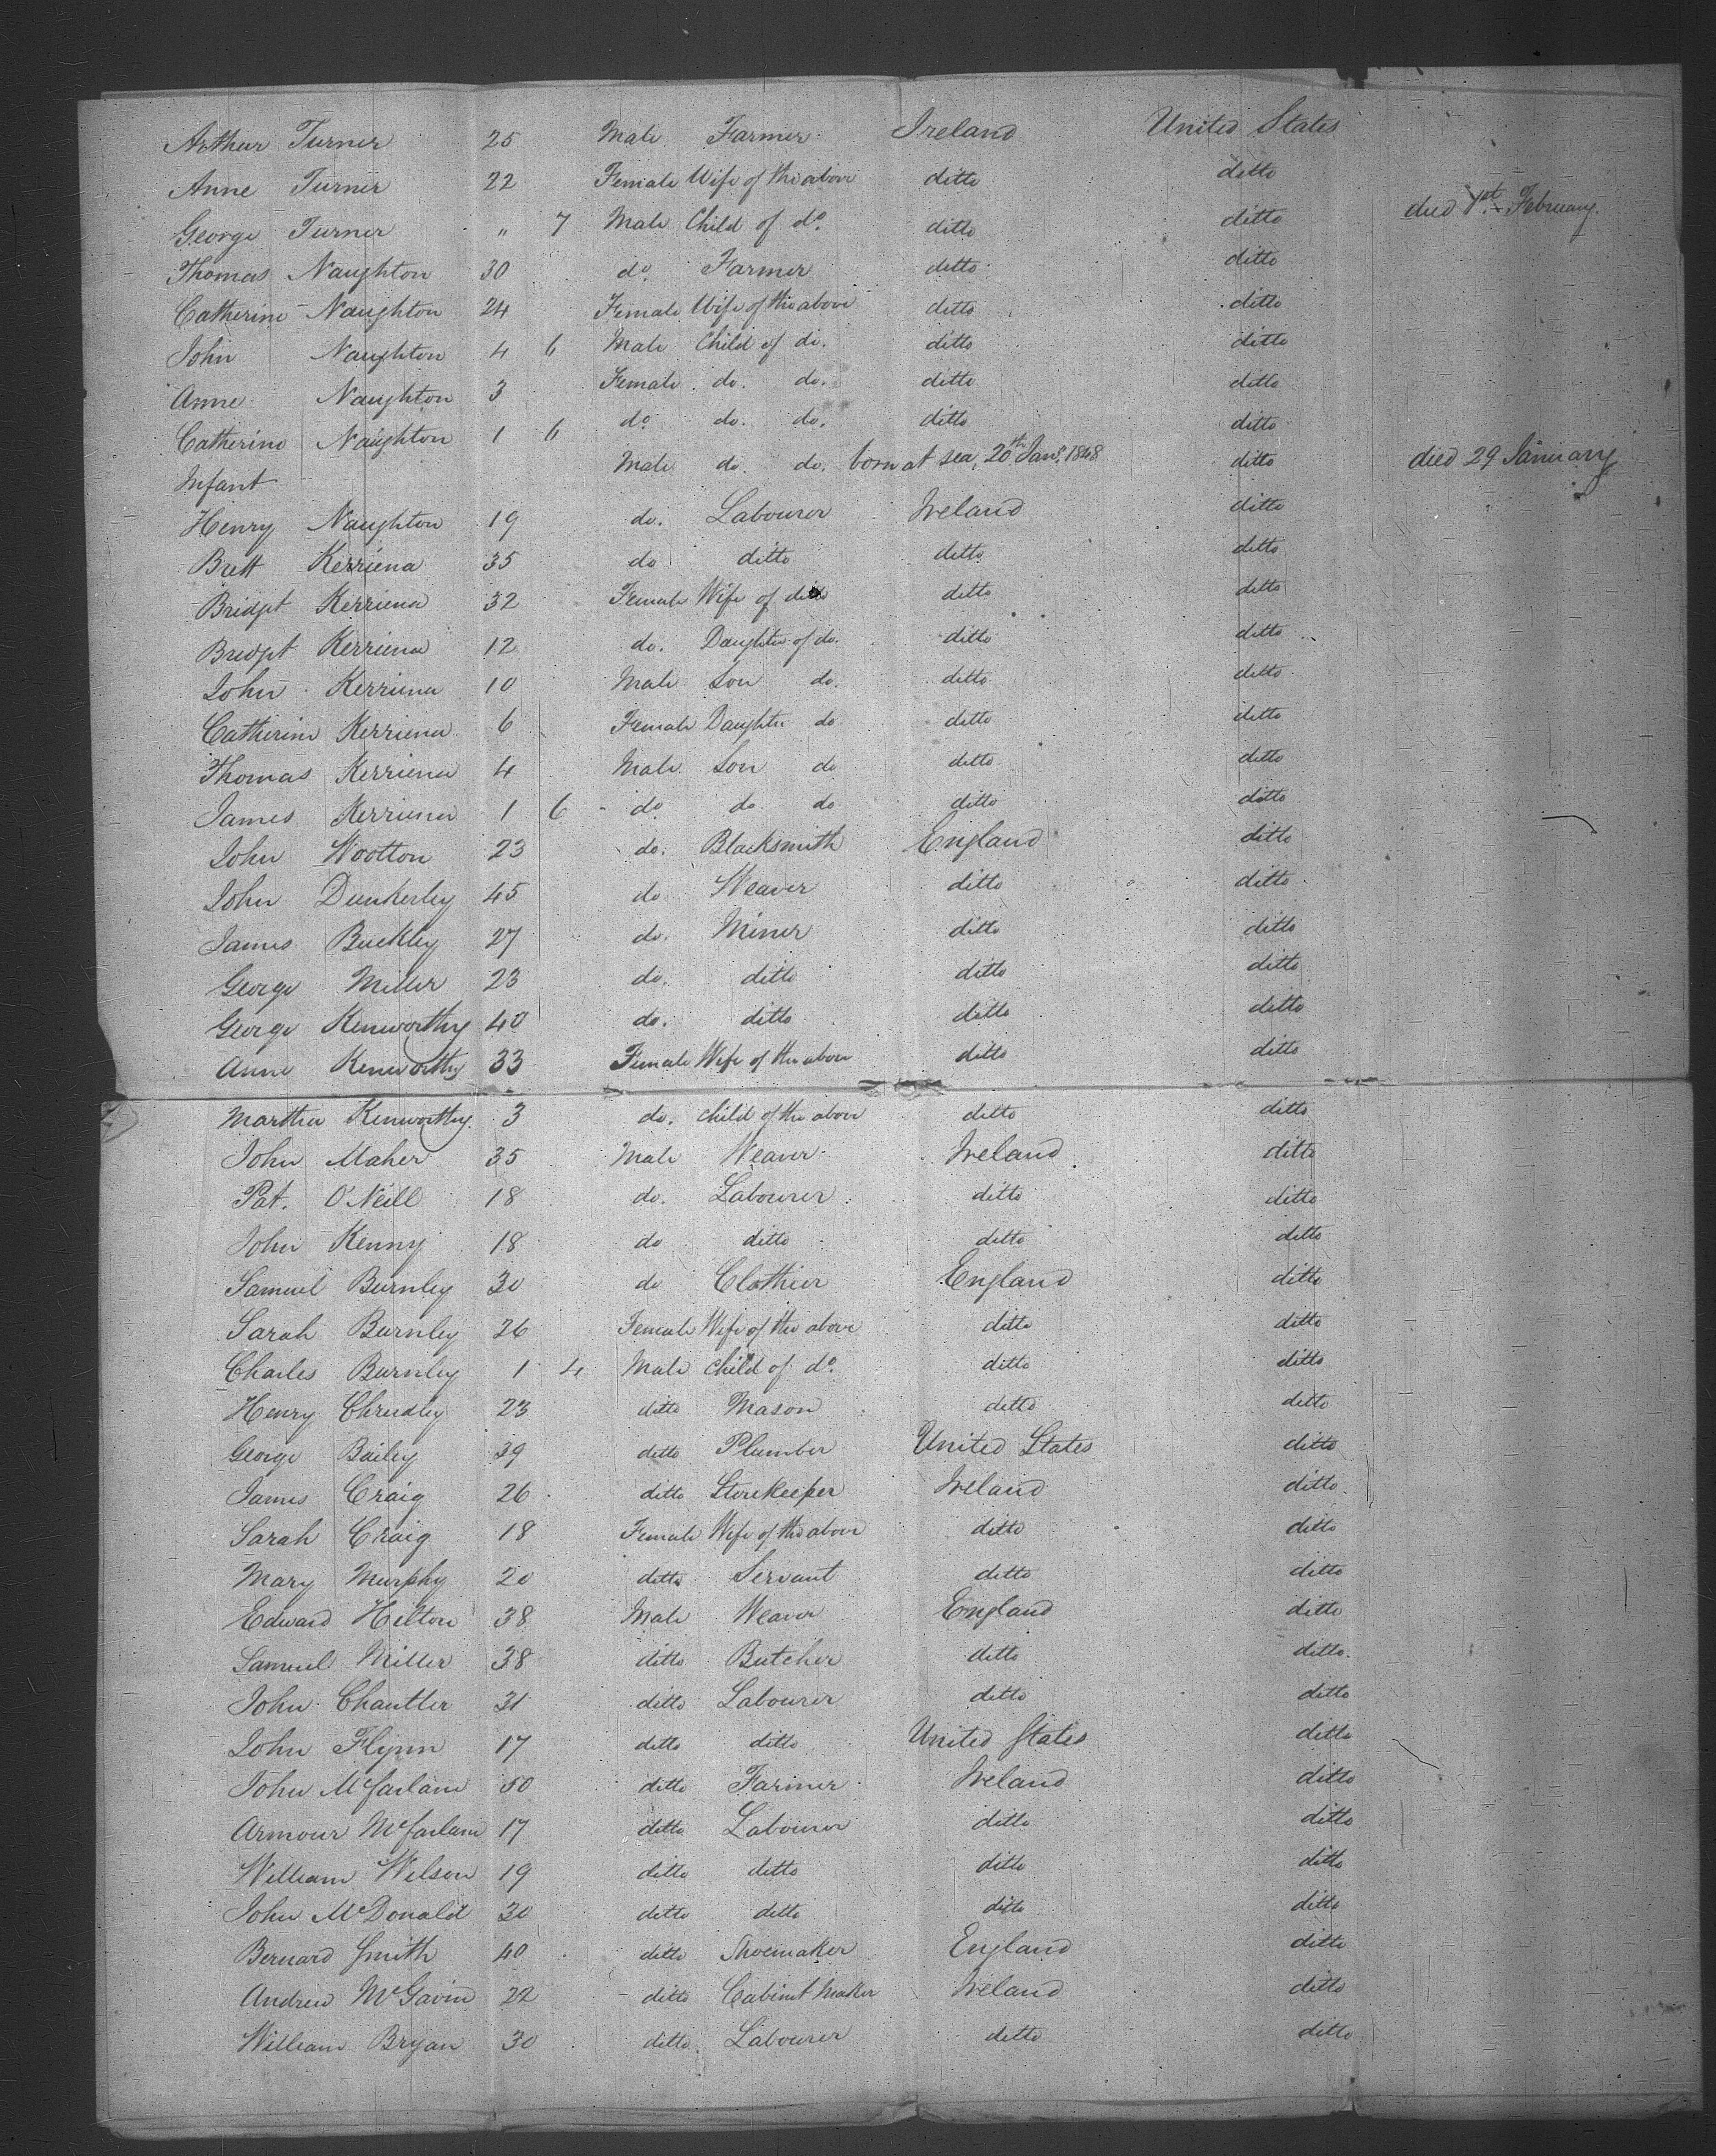 Arthur Turner 25 Male Farmer Ireland United States
Anne Turner 22 Female Wife of the above ditto ditto
George Turner " 7 Male Child of do. ditto ditto died 1st February.
Thomas Naughton 30 do. Farmer ditto ditto
Catherine Naughton 24 Female Wife of the above ditto ditto
John Naughton 4 6 Male Child of do. ditto ditto
Anne Naughton 3 Female do. do. ditto ditto
Catherine Naughton 1 6 do. do. do. ditto ditto
Infant Male do. do. born at sea, 20th Jany. 1848 ditto died 29 January
Henry Naughton 19 do. Labourer Ireland ditto
Brett Kerriena 35 do ditto ditto ditto
Bridgt Kerriena 32 Female Wife of ditto ditto ditto
Bridgt Kerriena 12 do. Daughter of do. ditto ditto
John Kerriena 10 Male Son do. ditto ditto
Catherine Kerriena 6 Female Daughter do ditto ditto
Thomas Kerriena 4 Male Son do ditto ditto
James Kerriena 1 6 do. do do ditto ditto
John Wootton 23 do. Blacksmith England ditto
John Dunkerley 45 do Weaver ditto ditto
James Buckley 27 do. Miner ditto ditto
George Miller 23 do. ditto ditto ditto
George Kenworthy 40 do. ditto ditto ditto
Anne Kenworthy 33 Female Wife of the above ditto ditto
Martha Kenworthy 3 do. child of the above ditto ditto
John Maher 35 Male Weaver Ireland ditto
Pat. O'Neill 18 do. Labourer ditto ditto
John Kenny 18 do ditto ditto ditto
Samuel Burnley 30 do Clothier England ditto
Sarah Burnley 26 Female Wife of the above ditto ditto
Charles Burnley 1 4 Male child of do. ditto ditto
Henry 23 ditto Mason ditto ditto
George Bailey 39 ditto Plumber United States ditto
James Craig 26 ditto Storekeeper Ireland ditto
Sarah Craig 18 Female Wife of the above ditto ditto
Mary Murphy 20 ditto Servant ditto ditto
Edward Hilton 38 Male Weaver England ditto
Samuel Miller 38 ditto Butcher ditto ditto
John Chantler 31 ditto Labourer ditto ditto
John Flynn 17 ditto ditto United States ditto
John McFarlane 50 ditto Farmer Ireland ditto
Armour McFarlane 17 ditto Labourer ditto ditto
William Wilson 19 ditto ditto ditto ditto
John McDonald 30 ditto ditto ditto ditto
Bernard Smith 40 ditto Shoemaker England ditto
Andrew McGavin 22 ditto Cabinet Maker Ireland ditto
William Bryan 30 ditto Labourer ditto ditto